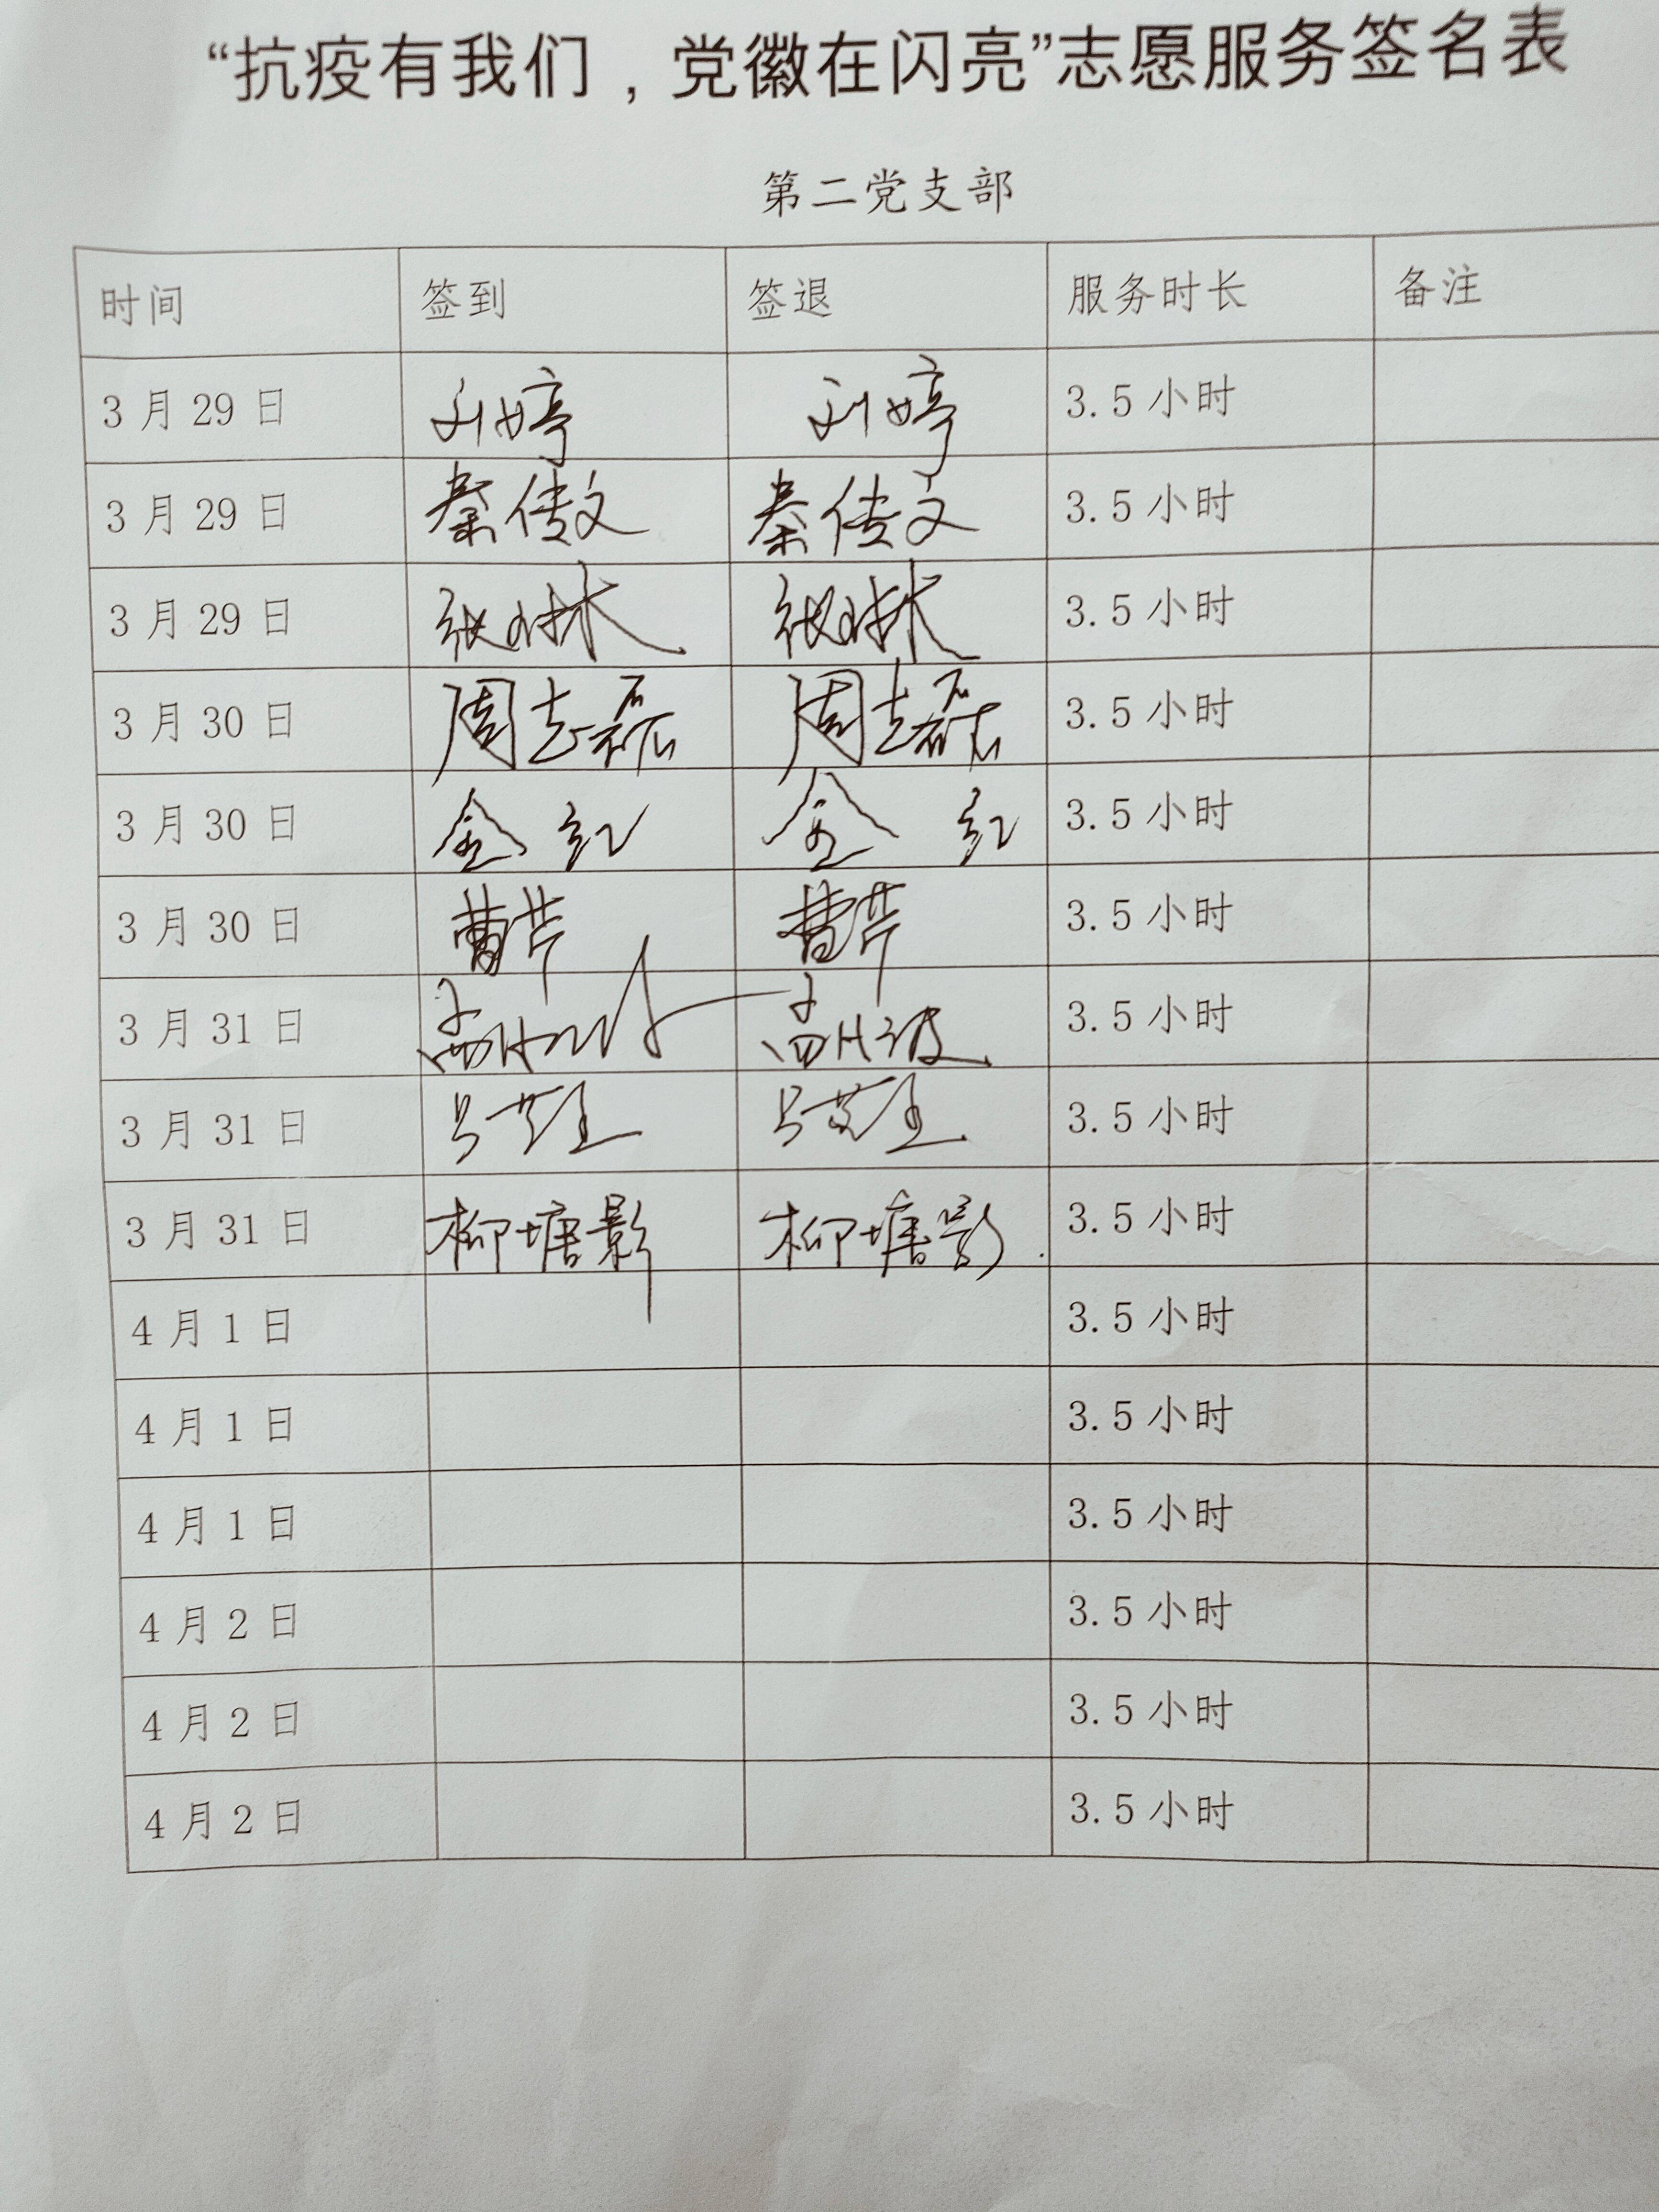 “抗疫有我们，党徽在闪亮”志愿服务签名表
第二党支部
时间 签到 签退 服务时长 备注
3月29日 刘婷 刘婷 3.5小时
3月29日 秦传文 秦传文 3.5小时
3月29日 3.5小时
3月30日 周志磊 周志磊 3.5小时
3月30日 金红 金红 3.5小时
3月30日 曹芹 曹芹 3.5小时
3月31日 3.5小时
3月31日 3.5小时
3月31日 柳塘影 柳塘影 3.5小时
4月1日 3.5小时
4月1日 3.5小时
4月1日 3.5小时
4月2日 3.5小时
4月2日 3.5小时
4月2日 3.5小时